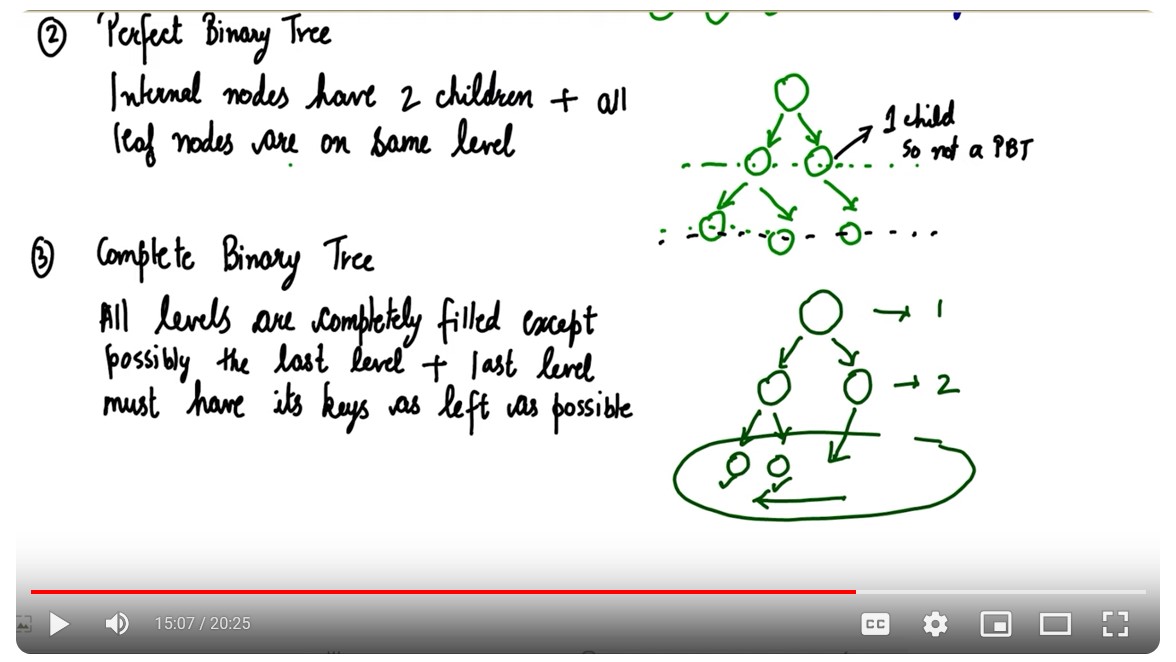 ② Perfect Binary Tree
Internal nodes have 2 children + all
leaf nodes are on same level
1 child
So not a PBT
③ Complete Binary Tree
All levels are completely filled except
possibly the last level + last level
must have its keys as left as possible
→ 1
→ 2
15:07 / 20:25
CC